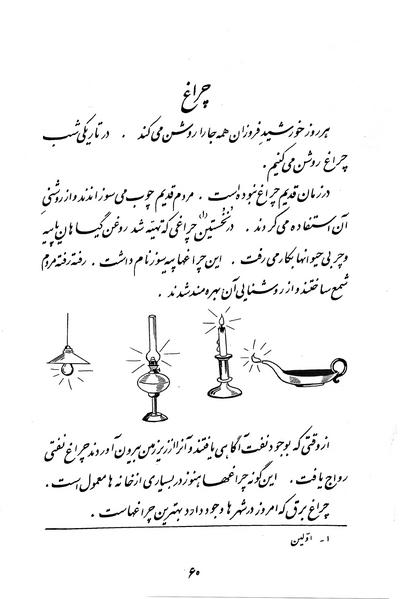 چراغ
هر روز خورشیدِ فروزان همه جا را روشن می کند . در تاریکی شب
چراغ روشن می کنیم .
در زمان قدیم چراغ نبوده است . مردم قدیم چوب می سوزاندند و از روشنیِ
آن استفاده می کردند . در نخستین (۱) چراغی که تهیّه شد روغن گیاهان یا پیه
و چربی حیوانها بکار می رفت . این چراغها پیه سوز نام داشت . رفته رفته مردم
شمع ساختند و از روشنایی آن بهره مند شدند .
از وقتی که بوجود نفت آگاهی یافتند و آنرا از زیر زمین بیرون آوردند چراغ نفتی
رواج یافت . این گونه چراغها هنوز در بسیاری از خانه ها معمول است .
چراغ برق که امروز در شهرها وجود دارد بهترین چراغهاست .
۱- اوّلین
۶۰